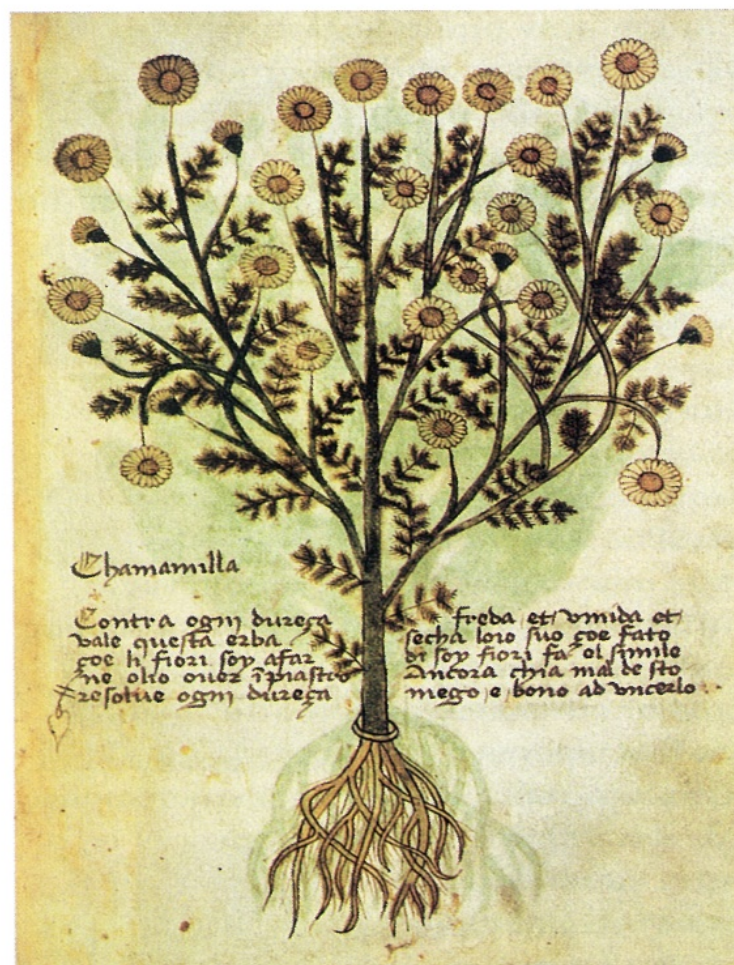 Chamamilla
Contra ogni dureça
vale questa erba
çoe li fiori soy afar
ne olio ouer īpiastro
resolue ogni dureça
freda et vmida et
secha loio suo çoe fato
di soy fiori fa el simile
Ancora chia mal de sto
mego e bono ad vncerlo